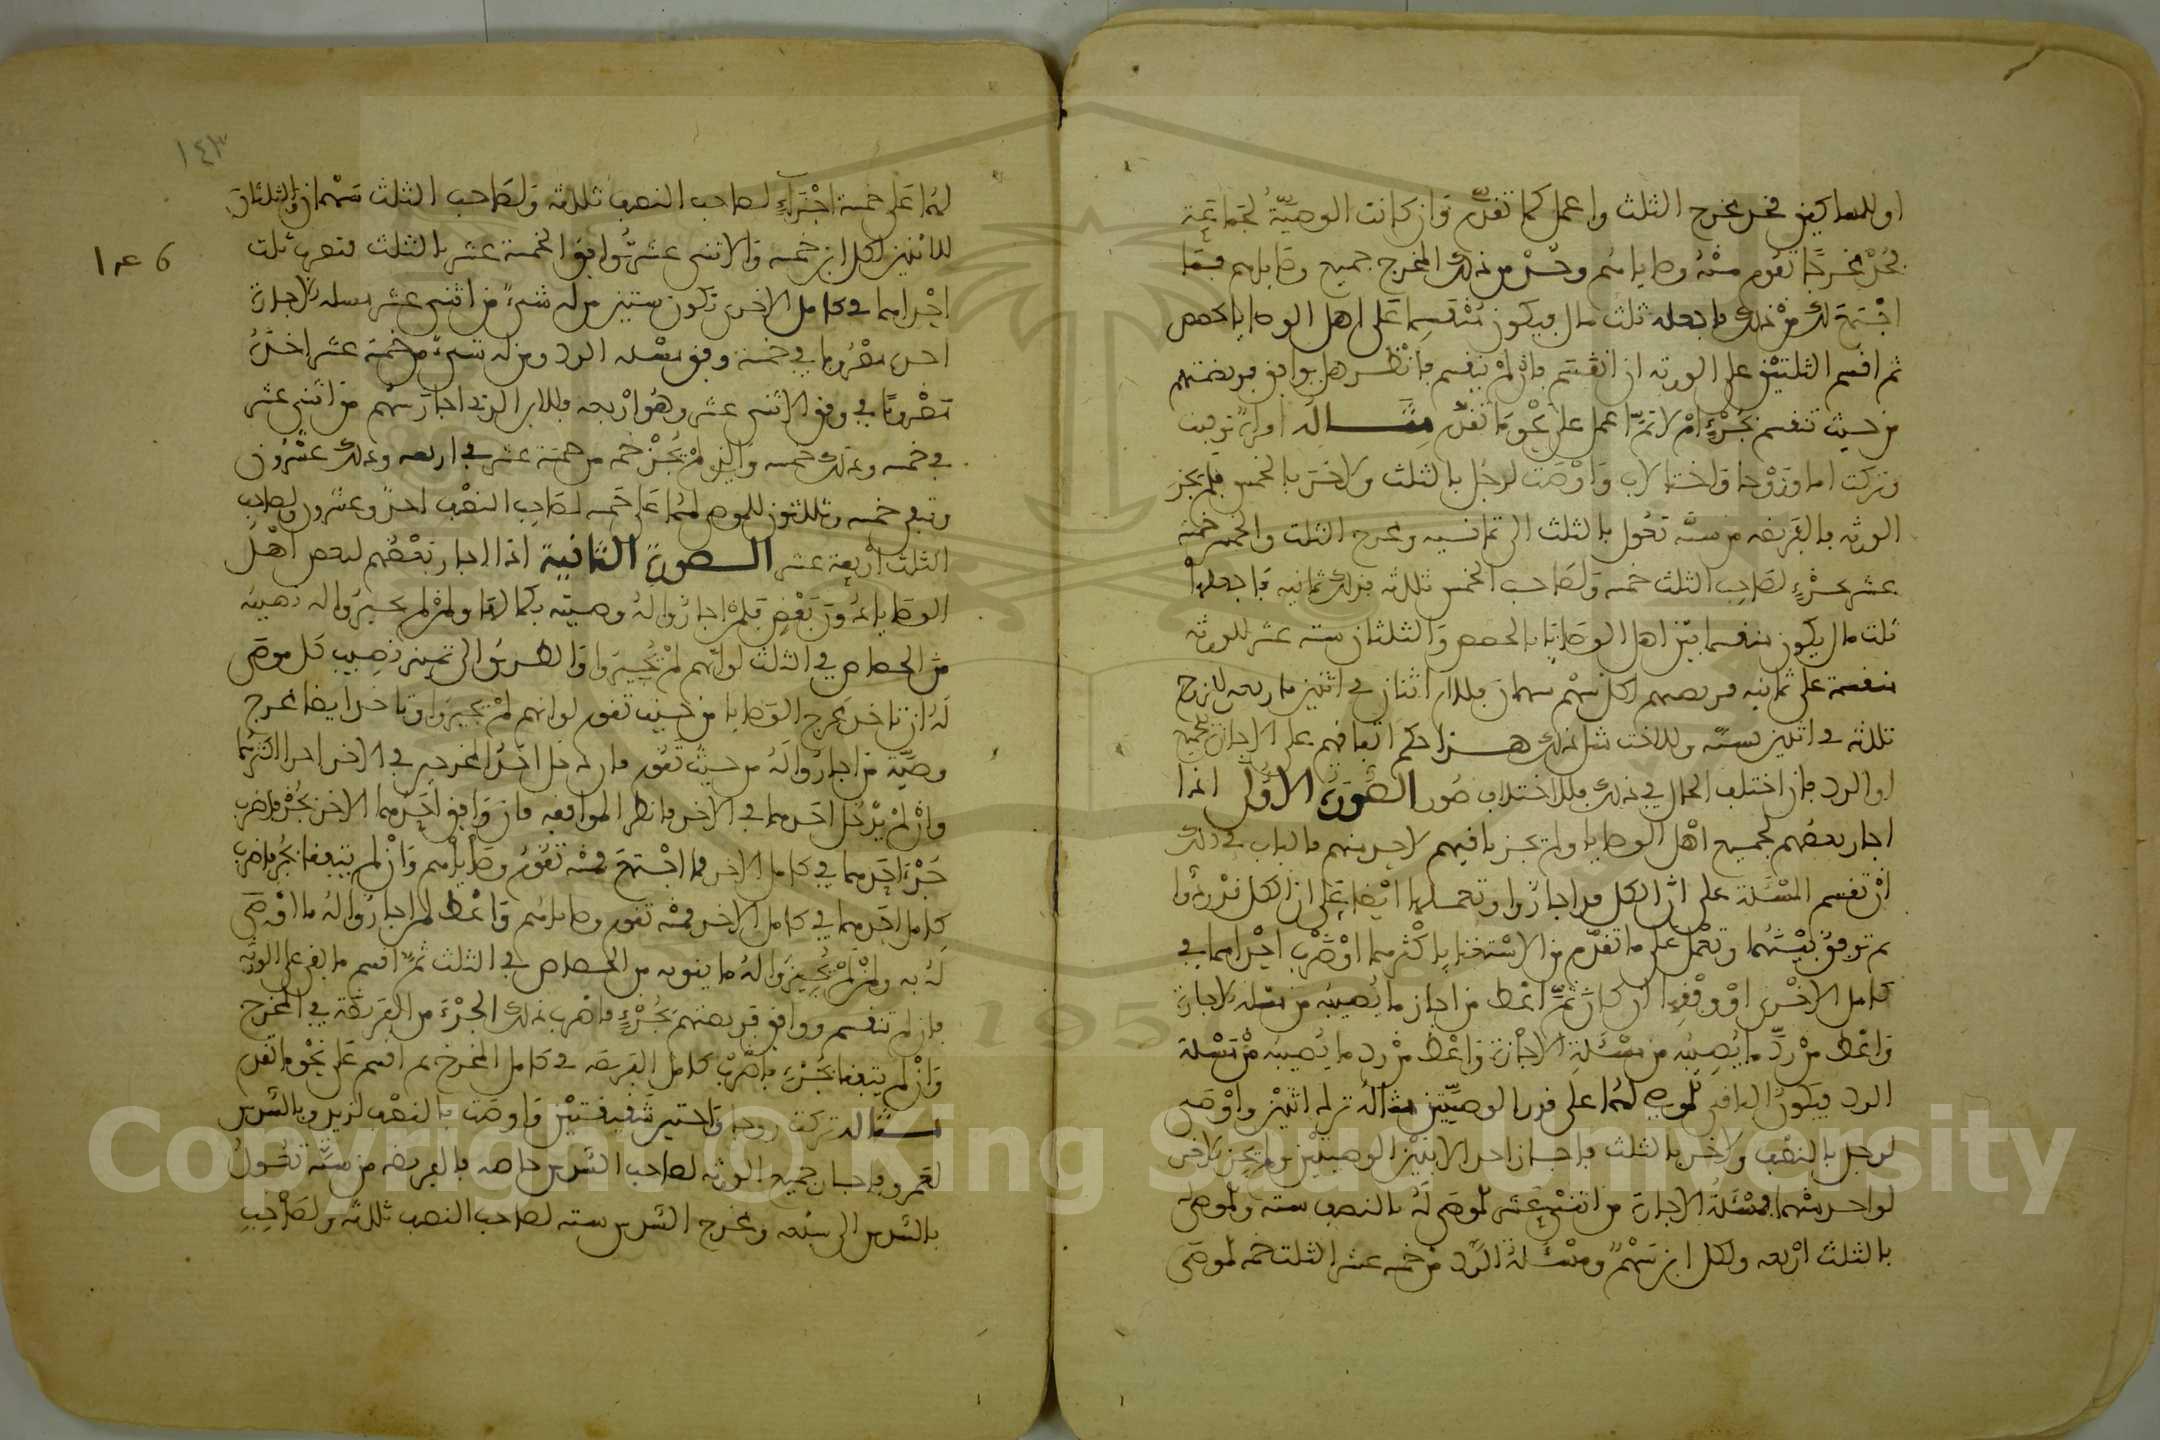 او للمساكين فخذ مخرج الثلث واعمل كما تقدم وان كانت الوصية لجماعة
فخذ مخرجا تقوم منه وصاياهم وخذ من ذلك المخرج جميع وصاياهم فما
اجتمع لك من ذلك فاجعله ثلث مال فيكون منقسما على اهل الوصايا بالحصص
ثم اقسم الثلثين على الورثة ان انقسم فان لم ينقسم فانظر هل يوافق فريضتهم
من حيث تنقسم بجزء ام لا ثم اعمل على نحو ما تقدم مثاله امراة توفيت
وتركت اما وزوجا واختا لاب واوصت لرجل بالثلث ولاخر بالخمس فلم يجز
الورثة فالفريضة من ستة تعول بالثلث الى ثمانية ومخرج الثلث والخمس خمسة
عشر بجزء لصاحب الثلث خمسة ولصاحب الخمس ثلاثة فذلك ثمانية فاجعلها
ثلث مال يكون منقسما بين اهل الوصايا بالحصص والثلثان ستة عشر للورثة
منقسمة على ثمانية فريضتهم لكل سهم سهمان فللام اثنان في اثنين باربعة للزوج
ثلاثة في اثنين بستة وللاخت مثل ذلك هذا حكم اتفاقهم على الاجازة للجميع
او الرد فان اختلف الحال في ذلك فللاختلاف صور الصورة الاولى اذا
اجاز بعضهم لجميع اهل الوصايا ولم يجز باقيهم لاحد منهم فالباب في ذلك
ان تقسم المسئلة على ان الكل قد اجازوا وتعملها ايضا على ان الكل قد ردوا
ثم توفق بينهما وتعمل على ما تقدم من الاستغناء باكثرهما او ضرب احداهما في
كامل الاخرى او وفقها ان كان ثم اعط من اجاز ما يصيبه من مسئلة الاجازة
واعط من رد ما يصيبه من مسئلة الاجازة واعط من رد ما يصيبه من مسئلة
الرد فيكون الباقي للموصى لهما على قدر الوصيتين مثاله ترك ابنين واوصى
لرجل بالنصف ولاخر بالثلث فاجاز احد الابنين الوصيتين ولم يجز الاخر
لواحد منهما فمسئلة الاجازة من اثني عشر للموصى له بالنصف ستة وللموصى
بالثلث اربعة ولكل ابن سهم ومسئلة الرد من خمسة عشر الثلث خمسة للموصى
١٤٣
6 عر ١
لهما على خمسة اجزاء لصاحب النصف ثلاثة ولصاحب الثلث سهمان والثلثان
للابنين لكل ابن خمسة والاثنى عشر توافق الخمسة عشر بالثلث فتضرب ثلث
احداهما في كامل الاخرى تكون ستين من له شيء من اثني عشر مسئلة الاجازة
اخذه مضروبا في خمسة وفق مسئلة الرد ومن له شيء من خمسة عشر اخذه
مضروبا في وفق الاثنى عشر وهو اربعة فللابن الذي اجاز سهم من اثني عشر
في خمسة وذلك خمسة والذي لم يجز خمسة من خمسة عشر في اربعة وذلك عشرون
وتبقى خمسة وثلاثون للموصى لهما على خمسة لصاحب النصف احد وعشرون ولصاحب
الثلث اربعة عشر الصورة الثانية اذا اجاز بعضهم لبعض اهل
الوصايا دون بعض فلمن اجازوا له وصيته بكمالها ولمن لم يجيزوا له نصيبه
من الحصاص في الثلث لو انهم لم يجيزوا والطريق الى تمييز نصيب كل موصى
له ان تاخذ مخرج الوصايا من حيث تقوم لو انهم لم يجيزوا وتاخذ ايضا مخرج
وصية من اجازوا له من حيث تقوم فان دخل احد المخرجين في الاخر اجزا اكثرهما
وان لم يدخل احدهما في الاخر فانظر الموافقة فان وافق احدهما الاخر بجزء فاضرب
جزء احدهما في كامل الاخر فما اجتمع فمنه تقوم وصاياهم وان لم يتفقا بجزء فاضرب
كامل احدهما في كامل الاخر فمنه تقوم وصاياهم واعط لمن اجازوا له ما اوصى
له به ولمن لم يجيزوا له ما ينوبه من الحصاص في الثلث ثم اقسم ما بقي على الورثة
فان لم تنقسم ووافق فريضتهم بجزء فاضرب ذلك الجزء من الفريضة في المخرج
وان لم يتفقا بجزء فاضرب كامل الفريضة في كامل المخرج ثم اقسم على نحو ما تقدم
مثاله تركت زوجا واختين شقيقتين واوصت بالنصف لزيد وبالسدس
لعمرو فاجاز جميع الورثة لصاحب السدس خاصة فالفريضة من ستة تعول
بالسدس الى سبعة ومخرج السدس ستة لصاحب النصف ثلاثة ولصاحب